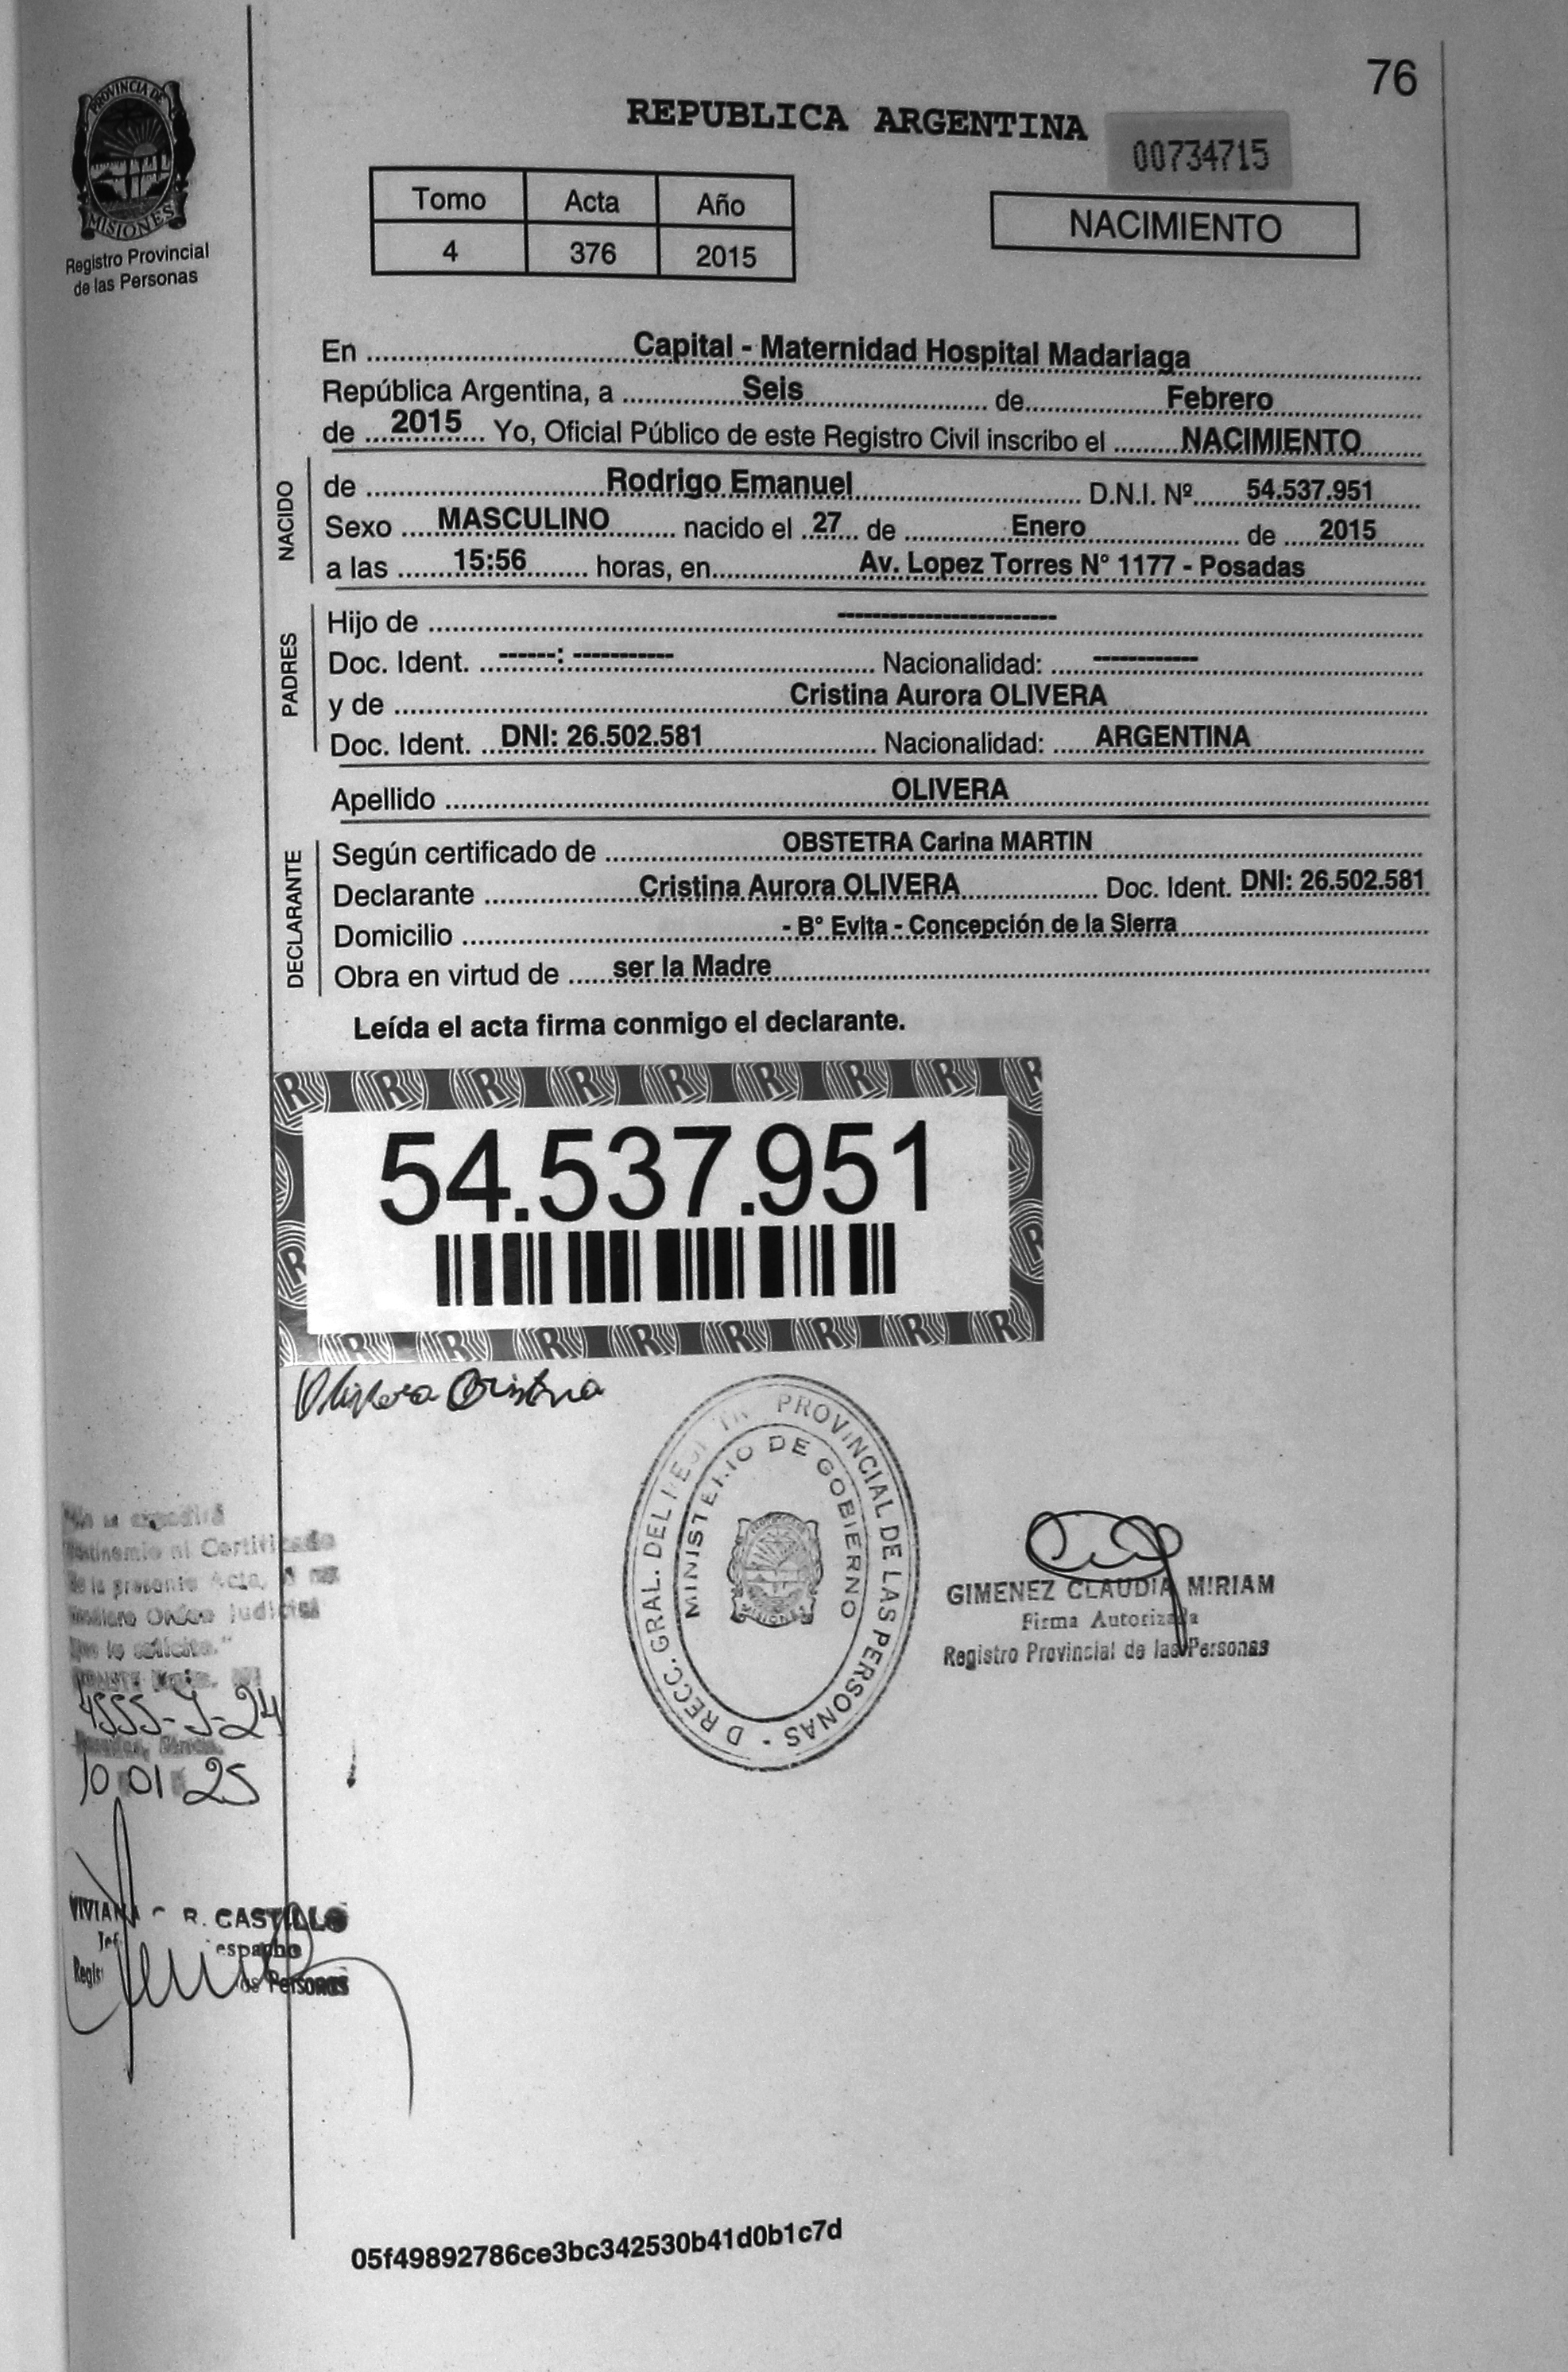 76
REPUBLICA ARGENTINA
00734715
PROVINCIA DE
MISIONES
Registro Provincial
de las Personas
Tomo Acta Año
4 376 2015
NACIMIENTO
En Capital - Maternidad Hospital Madariaga
República Argentina, a Seis de Febrero
de 2015 Yo, Oficial Público de este Registro Civil inscribo el NACIMIENTO
NACIDO
de Rodrigo Emanuel D.N.I. Nº 54.537.951
Sexo MASCULINO nacido el 27 de Enero de 2015
a las 15:56 horas, en Av. Lopez Torres N° 1177 - Posadas
PADRES
Hijo de -------------------------
Doc. Ident. ------: ----------- Nacionalidad: ------------
y de Cristina Aurora OLIVERA
Doc. Ident. DNI: 26.502.581 Nacionalidad: ARGENTINA
Apellido OLIVERA
DECLARANTE
Según certificado de OBSTETRA Carina MARTIN
Declarante Cristina Aurora OLIVERA Doc. Ident. DNI: 26.502.581
Domicilio - B° Evita - Concepción de la Sierra
Obra en virtud de ser la Madre
Leída el acta firma conmigo el declarante.
54.537.951
Olivera Cristina
PROVINCIAL DE LAS PERSONAS - D RECC. GRAL. DEL
MINISTERIO DE GOBIERNO
MISIONES
GIMENEZ CLAUDIA MIRIAM
Firma Autorizada
Registro Provincial de las Personas
se expedirá
ni Certificado
de la presente Acta,
Orden Judicial
que lo solicite."
10 01 25
R. CASTILLO
Personas
05f49892786ce3bc342530b41d0b1c7d